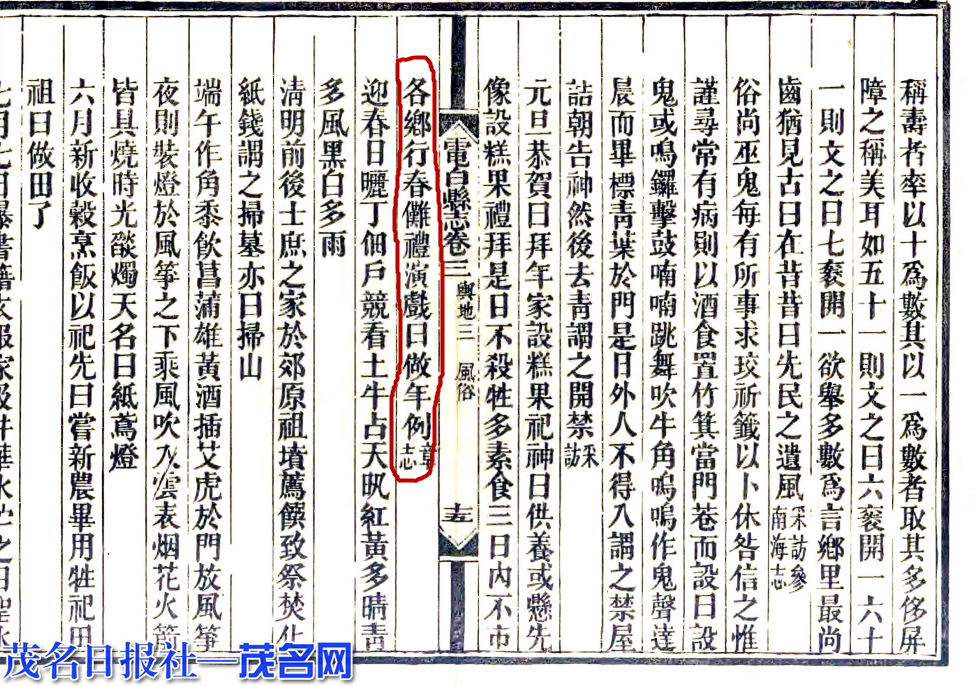 稱壽者率以十爲數其以一爲數者取其多侈屏
障之稱美耳如五十一則文之曰六袠開一六十
一則文之曰七袠開一欲舉多數爲言鄉里最尚
齒猶見古曰在昔昔曰先民之遺風采訪參南海志
俗尚巫鬼每有所事求珓祈籤以卜休咎信之惟
謹尋常有病則以酒食置竹箕當門巷而設曰設
鬼或鳴鑼擊鼓喃喃跳舞吹牛角嗚嗚作鬼聲達
晨而畢標青葉於門是日外人不得入謂之禁屋
詰朝告神然後去青謂之開禁采訪
元旦恭賀曰拜年家設糕果祀神曰供養或懸先
像設糕果禮拜是日不殺牲多素食三日內不市
電白縣志卷三 輿地三 風俗 十五
各鄉行春儺禮演戲曰做年例章志
迎春日曬丁佃戶競看土牛占天㫛紅黃多晴青
多風黑白多雨
淸明前後士庶之家於郊原祖墳薦饌致祭焚化
紙錢謂之掃墓亦曰掃山
端午作角黍飲菖蒲雄黃酒插艾虎於門放風箏
夜則裝燈於風箏之下乘風吹入雲表烟花火箭
皆具燒時光燄燭天名曰紙鳶燈
六月新收穀烹飯以祀先曰嘗新農畢用牲祀田
祖曰做田了
茂名日报社—茂名网